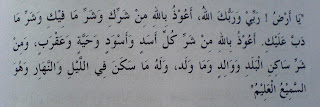 "يَا أَرْضُ ! رَبِّيْ وَرَبُّكِ اللهُ، أَعُوْذُ بِاللهِ مِنْ شَرِّكِ وَشَرِّ مَا فِيْكِ وَشَرِّ مَا
دَبَّ عَلَيْكِ. أَعُوْذُ بِاللهِ مِنْ شَرِّ كُلِّ أَسَدٍ وَأَسْوَدٍ وَحَيَّةٍ وَعَقْرَبٍ، وَمِنْ
شَرِّ سَاكِنِ الْبَلَدِ وَوَالِدٍ وَمَا وَلَدَ، وَلَهُ مَا سَكَنَ فِي اللَّيْلِ وَالنَّهَارِ وَهُوَ
السَّمِيْعُ الْعَلِيْمُ"